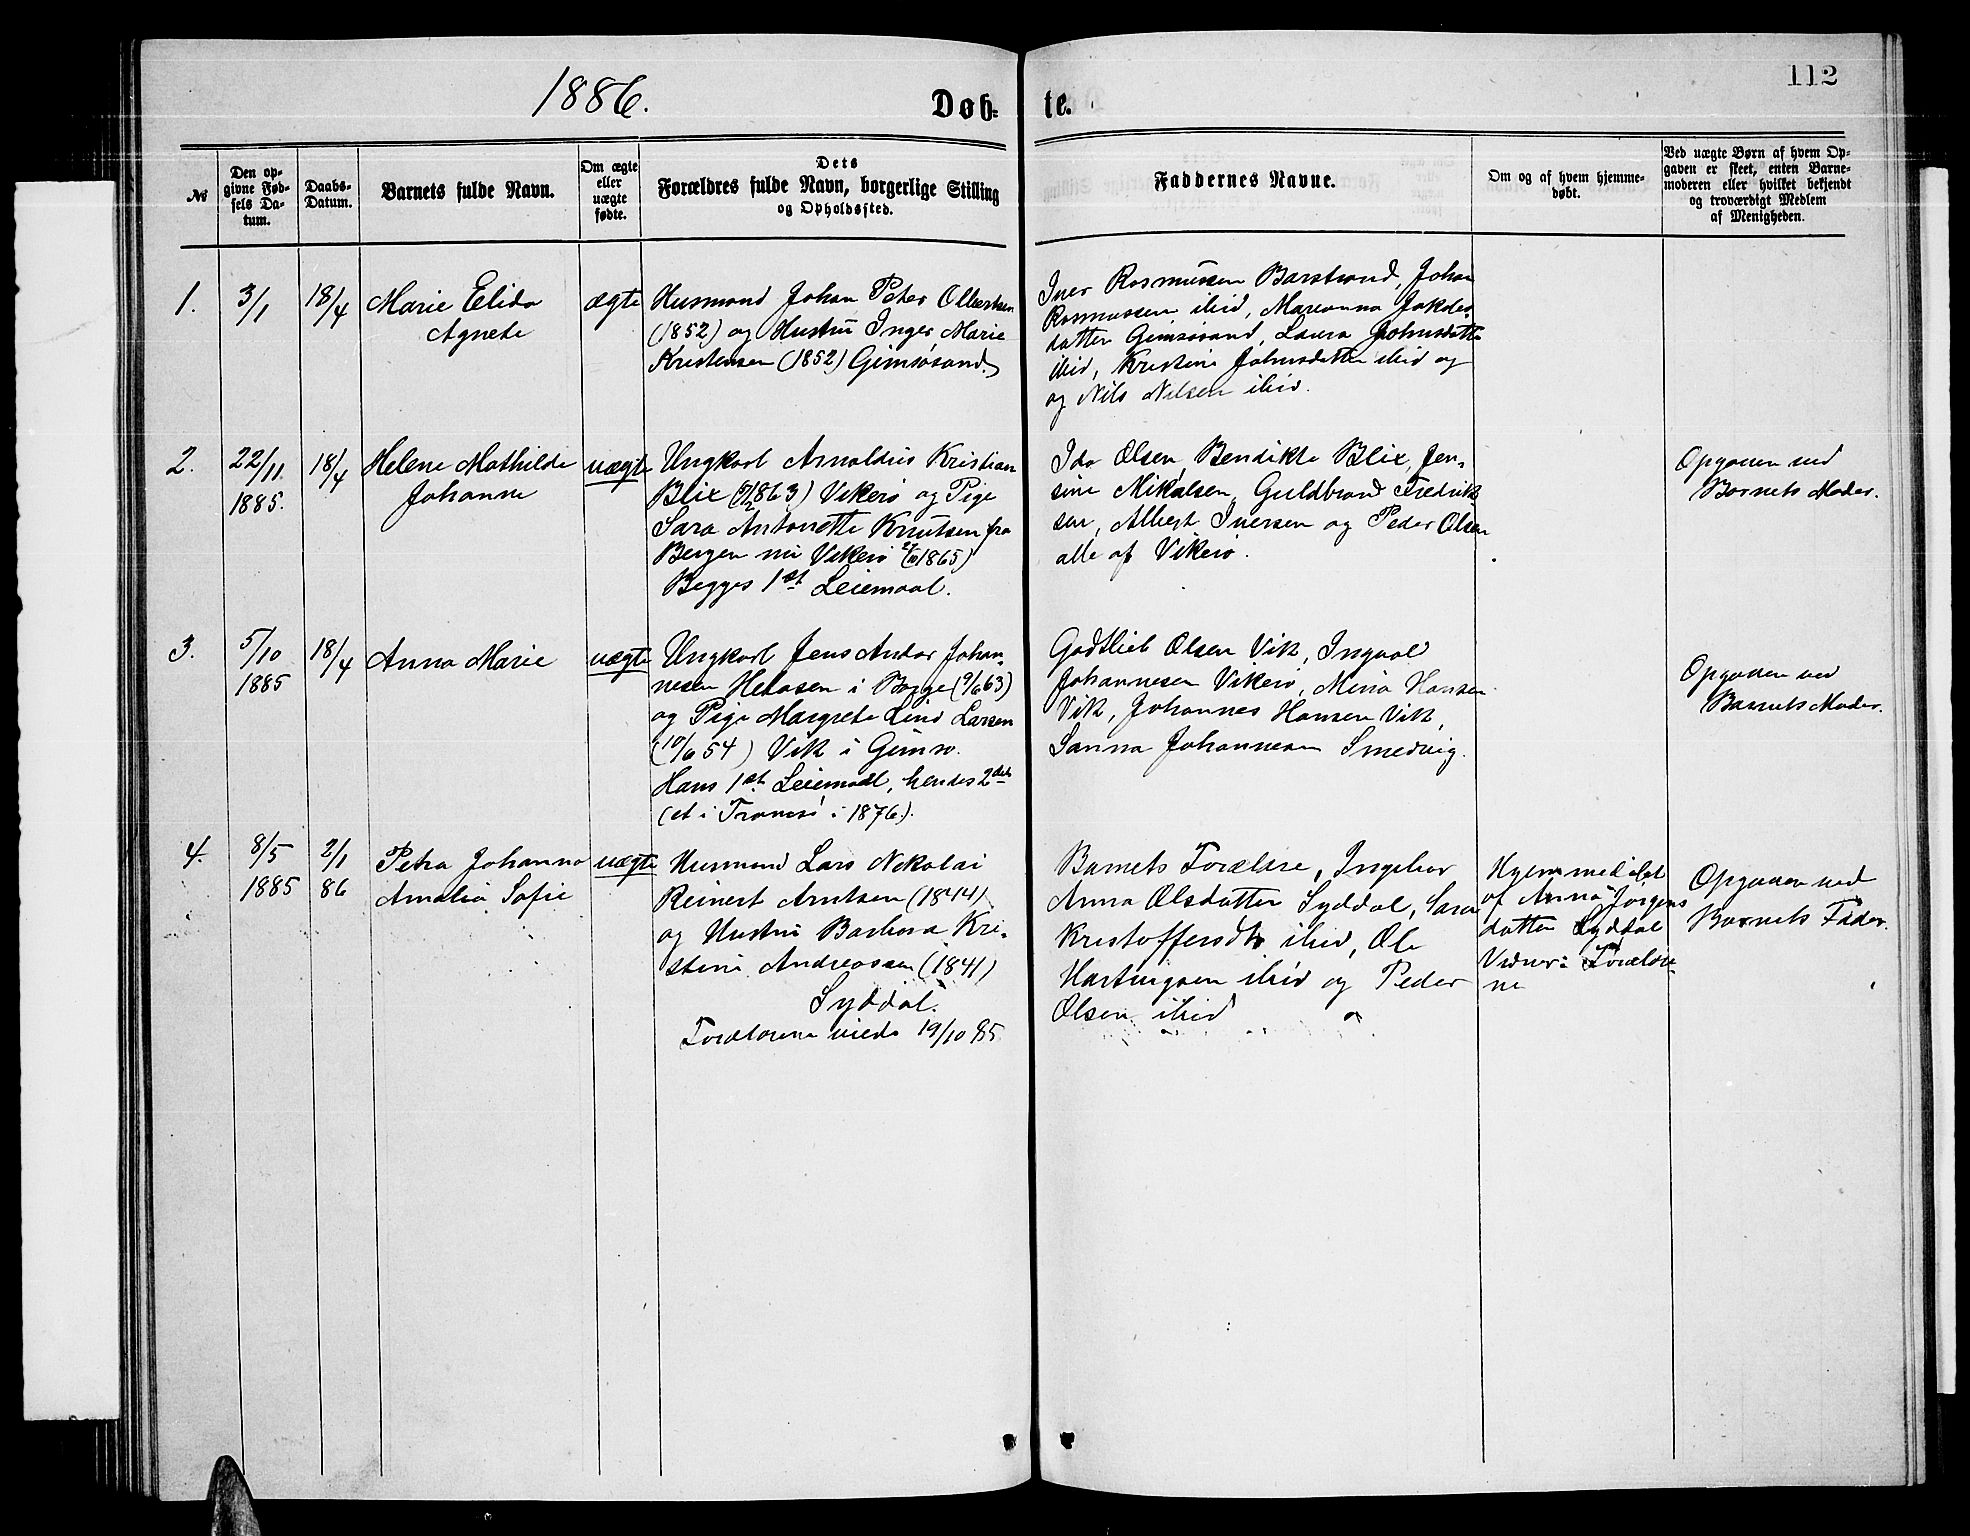 112
1886.
Døb- te.
No
Den op-
givne Fød-
sels Da-
tum.
Daabs-
Datum.
Barnets fulde Navn.
Om ægte
eller
uægte
fødte.
Dets
Forældres fulde Navn, borgerlige Stilling
og Opholdssted.
Faddernes Navne.
Om og af hvem hjemme-
døbt.
Ved uægte Børn af hvem Op-
gaven er skeet, enten Barne-
moderen eller hvilket bekjendt
og troværdigt Medlem
af Menigheden.
1.
3/1
18/4
Marie Elida
Agnete
ægte
Husmand Johan Peter Olbertsen
(1852) og Hustru Inger Marie
Kristensen (1852) Gimsøsand.
Iver Rasmussen Barstrand, Johan
Rasmussen ibid, Marianna Jakobs
datter Gimsøsand, Laura Johnsdatter
ibid, Kristine Johnsdatter ibid og
og Nils Nilsen ibid.
2.
22/11
1885.
18/4
Helene Mathilde
Johanne
uægte
Ungkarl Arnoldus Kristian
Blix (1863) Vikerø og Pige
Sara Antonette Knutsen fra
Bergen nu Vikerø (1865)
Begges 1st Leiemaal.
Ida Olsen, Bendikte Blix, Jen-
sine Mikalsen, Guldbrand Fredrik
sen, Albert Iversen og Peder Olsen
alle af Vikerø.
Opgaven ved
Barnets Moder.
3.
5/10
1885
18/4
Anna Marie
uægte
Ungkarl Jens Andor Johan-
nesen Helosen i Bøgge (9/6 63)
og Pige Margrete Lind Larsen
(10/6 54) Vik i Gimsø.
Hans 1st Leiemaal, hendes 2det
(et i Tromsø i 1876).
Godtlieb Olsen Vik, Ingval
Johannesen Vikerø, Mina Hansen
Vik, Johannes Hansen Vik,
Sanna Johannesen Smedvig.
Opgaven ved
Barnets Moder.
4.
8/5
1885
2/1
86
Petra Johanna
Amalia Sofie
uægte
Husmand Lars Nikolai
Reinert Arntsen (1844)
og Hustru Barbara Kri-
stine Andreassen (1841)
Syddal.
Forældrene viede 19/10 85
Barnets Forældre, Ingebor
Anna Olsdatter Syddal, Sara
Kristoffersdtr ibid, Ole
Hartvigsen ibid og Peder
Olsen ibid
Hjemmedøbt
af Anna Jørgens
datter Syddal
Vidner: Forældre-
ne
Opgaven ved
Barnets Fader.